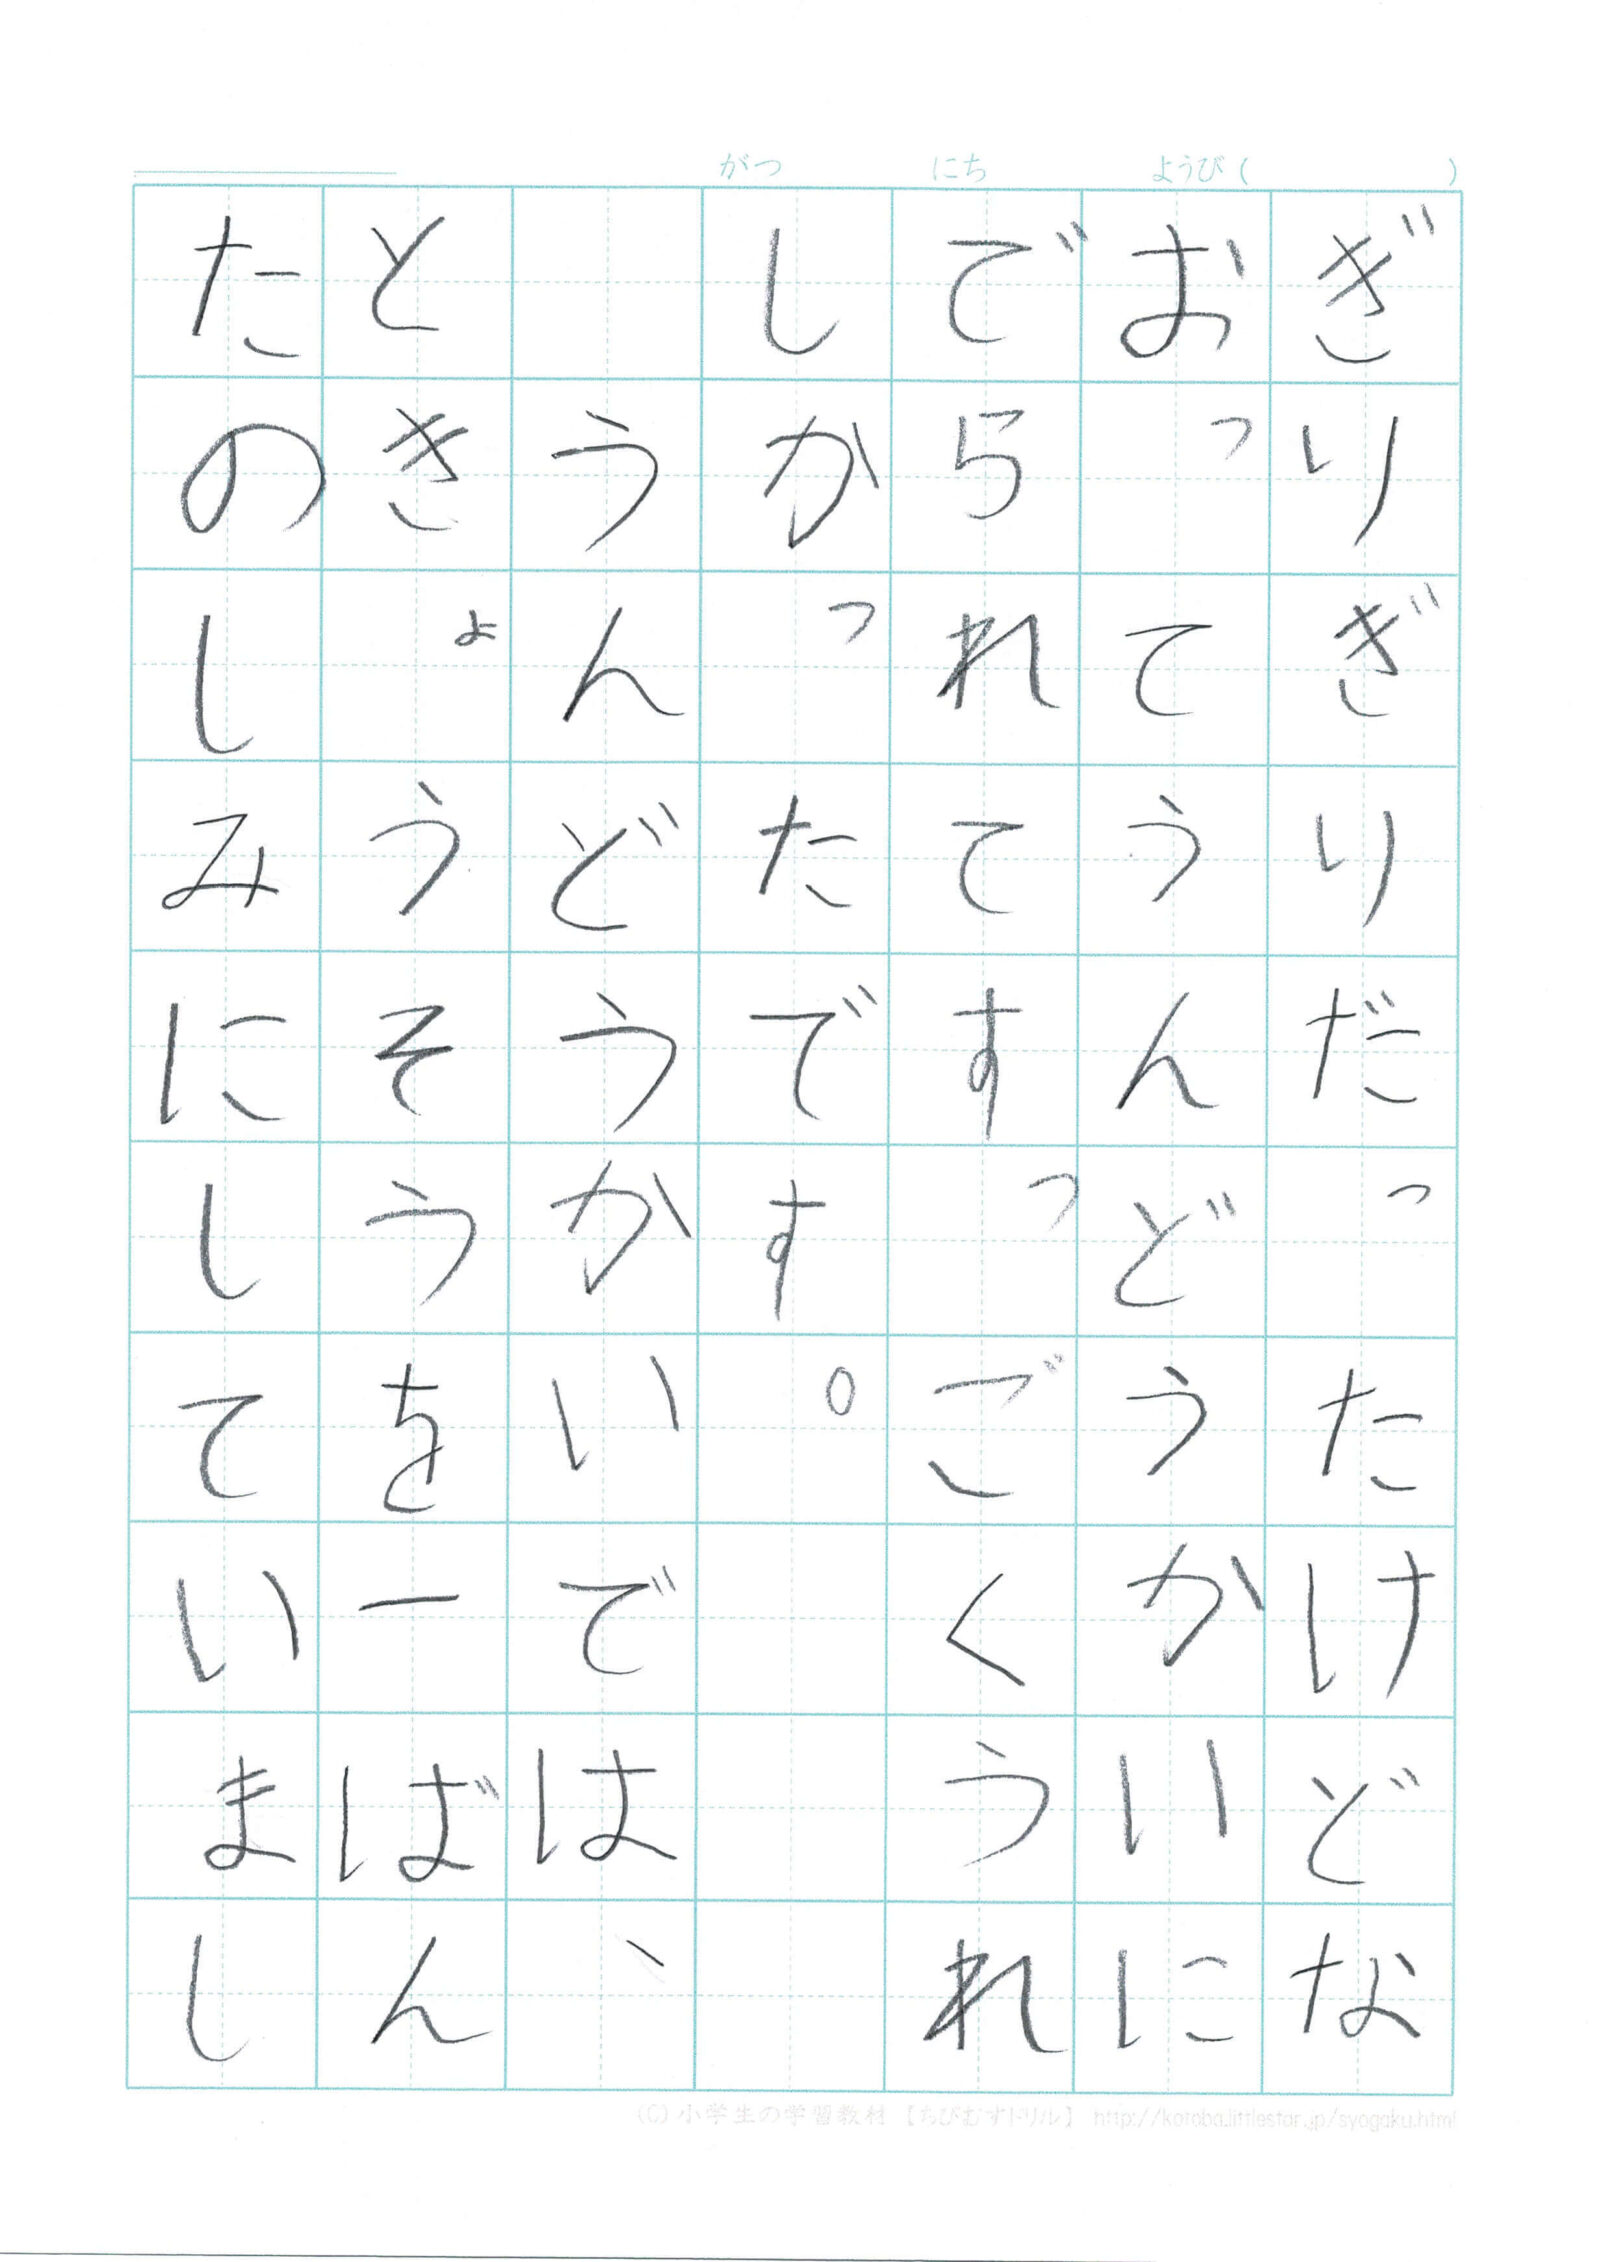 がつ にち ようび( )
ぎりぎりだったけどな
おってうんどうかいに
でられてすっごくうれ
しかったです。
うんどうかいでは、
ときょうそうを一ばん
たのしみにしていまし
(C)小学生の学習教材【ちびむすドリル】 http://kotoba.littlestar.jp/syogaku.html